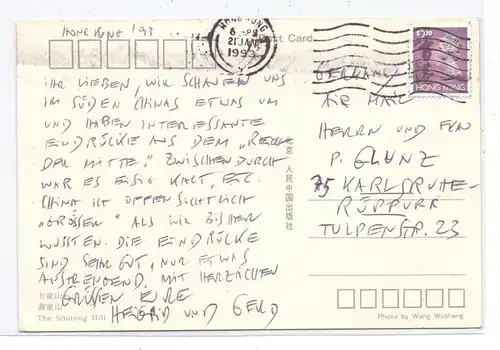 HONG KONG '93
Post Card
HONG KONG
6 - PM
21 JAN
1993
$2.30
香港
HONG KONG
IHR LIEBEN, WIR SCHAUEN UNS
IM SÜDEN CHINAS ETWAS UM
UND HABEN INTERESSANTE
EINDRÜCKE AUS DEM „REICH
DER MITTE." ZWISCHENDURCH
WAR ES EISIG KALT, ETC.
CHINA IST OFFENSICHTLICH
„GRÖSSER" ALS WIR BISHER
WUSSTEN. DIE EINDRÜCKE
SIND SEHR GUT, NUR ETWAS
ANSTRENGEND. MIT HERZLICHEN
GRÜSSEN EURE
HEIDRID UND GERD
GERMANY
AIR MAIL
HERRN UND FRAU
P. GLUNZ
75 KARLSRUHE-
RÜPPURR
TULPENSTR. 23
北京 人民中国出版社
寿童山
The Shutong Hill
Photo by Wang Wusheng